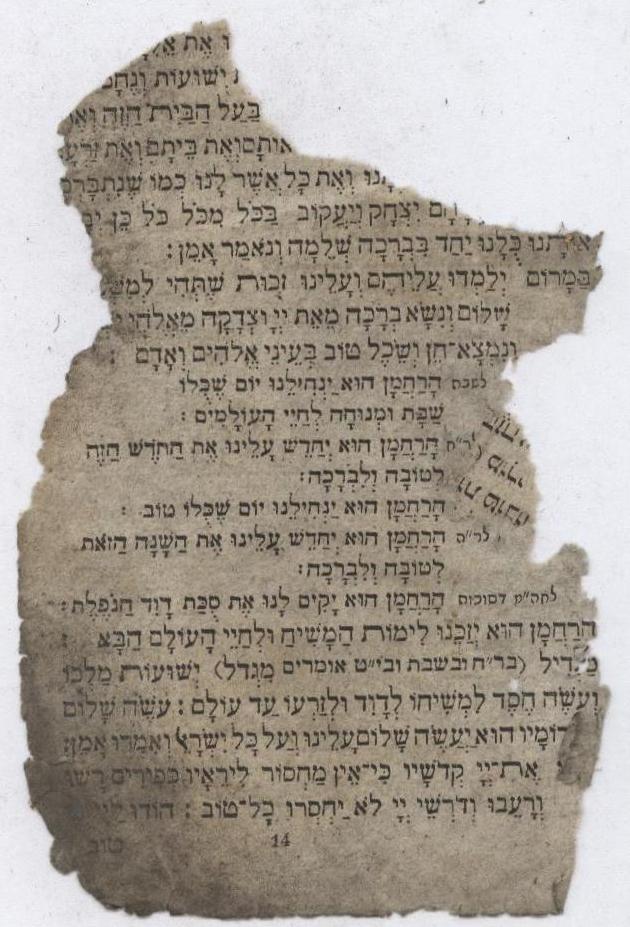 ו אֶת אֵלִ
יְשׁוּעוֹת וְנֶחָמ
בַּעַל הַבַּיִת הַזֶּה וְאֵ
אוֹתָם וְאֶת בֵּיתָם וְאֶת זַרְעָ
וְאֶת כָּל אֲשֶׁר לָנוּ כְּמוֹ שֶׁנִּתְבָּרְכ
יִצְחָק וְיַעֲקוֹב בַּכֹּל מִכֹּל כֹּל כֵּן יְבָ
אוֹתָנוּ כֻּלָּנוּ יַחַד בִּבְרָכָה שְׁלֵמָה וְנֹאמַר אָמֵן:
בַּמָּרוֹם יְלַמְּדוּ עֲלֵיהֶם וְעָלֵינוּ זְכוּת שֶׁתְּהִי לְמִשְׁ
שָׁלוֹם וְנִשָּׂא בְרָכָה מֵאֵת יְיָ וּצְדָקָה מֵאֱלֹהֵי
וְנִמְצָא־חֵן וְשֵׂכֶל טוֹב בְּעֵינֵי אֱלֹהִים וְאָדָם :
לשבת הָרַחֲמָן הוּא יַנְחִילֵנוּ יוֹם שֶׁכֻּלּוֹ
שַׁבָּת וּמְנוּחָה לְחַיֵּי הָעוֹלָמִים :
לר״ח הָרַחֲמָן הוּא יְחַדֵּשׁ עָלֵינוּ אֶת הַחֹדֶשׁ הַזֶּה
לְטוֹבָה וְלִבְרָכָה:
הָרַחֲמָן הוּא יַנְחִילֵנוּ יוֹם שֶׁכֻּלּוֹ טוֹב :
לר״ה הָרַחֲמָן הוּא יְחַדֵּשׁ עָלֵינוּ אֶת הַשָּׁנָה הַזֹּאת
לְטוֹבָה וְלִבְרָכָה:
לחה״מ דסוכות הָרַחֲמָן הוּא יָקִים לָנוּ אֶת סֻכַּת דָּוִד הַנֹּפֶלֶת:
הָרַחֲמָן הוּא יְזַכֵּנוּ לִימוֹת הַמָּשִׁיחַ וּלְחַיֵּי הָעוֹלָם הַבָּא :
מַגְדִּיל (בר״ח ובשבת ובי״ט אומרים מִגְדּל) יְשׁוּעוֹת מַלְכּוֹ
וְעֹשֶׂה חֶסֶד לִמְשִׁיחוֹ לְדָוִד וּלְזַרְעוֹ עַד עוֹלָם : עֹשֶׂה שָׁלוֹם
רוֹמָיו הוּא יַעֲשֶׂה שָׁלוֹם עָלֵינוּ וְעַל כָּל יִשְׂרָאֵל וְאִמְרוּ אָמֵן:
אֶת־יְיָ קְדֹשָׁיו כִּי־אֵין מַחְסוֹר לִירֵאָיו: כְּפִירִים רָשׁוּ
וְרָעֵבוּ וְדֹרְשֵׁי יְיָ לֹא יַחְסְרוּ כָל־טוֹב : הוֹדוּ לַיְיָ
14 טוב